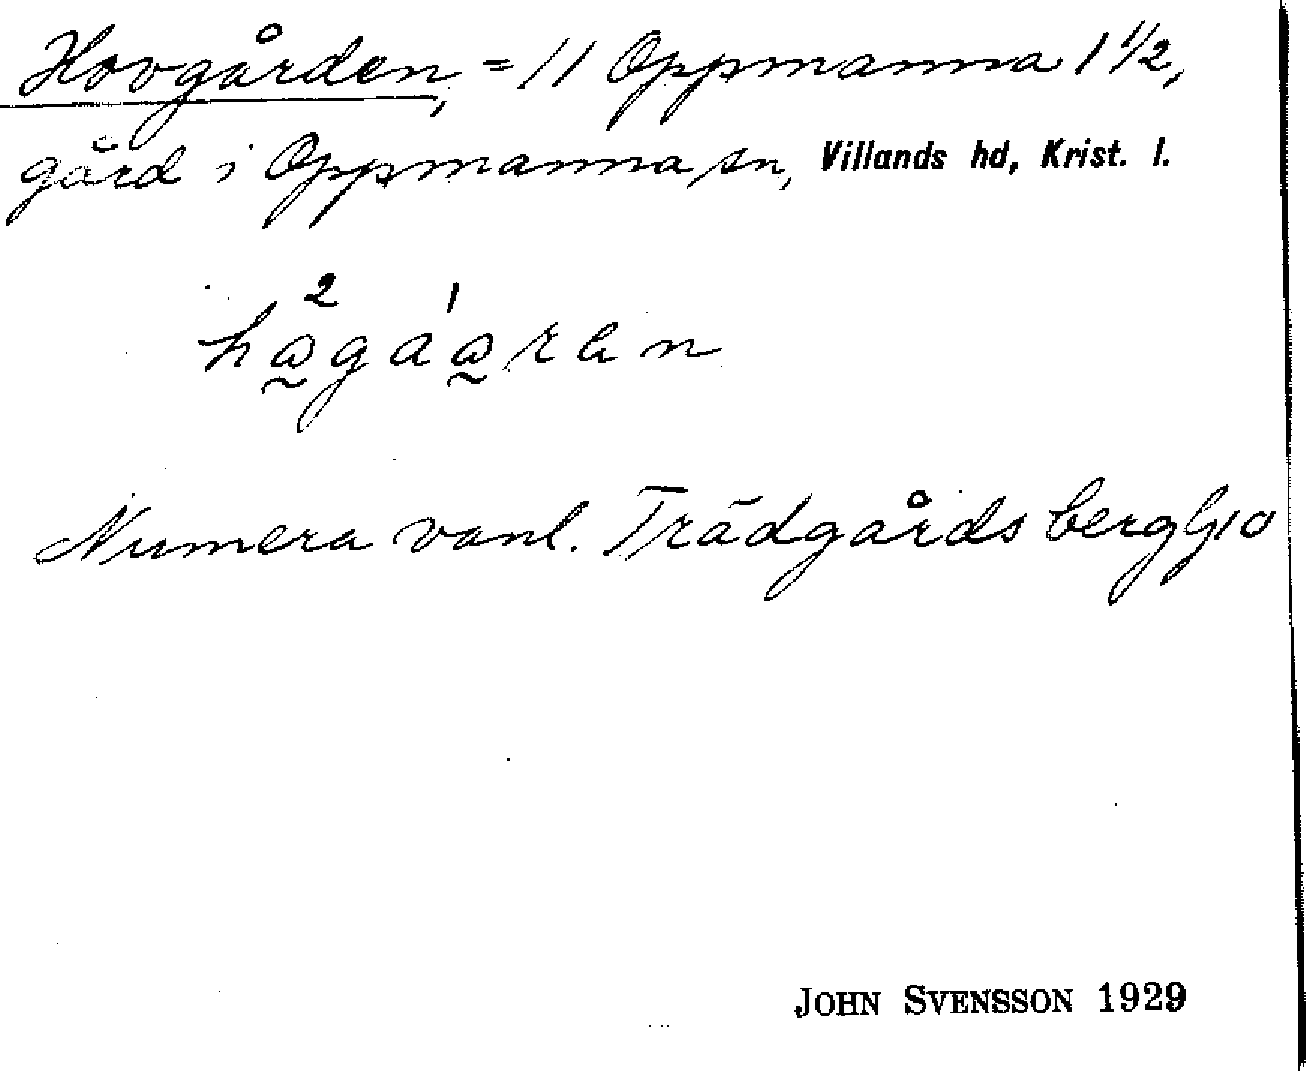 Hovgården, = 11 Oppmanna 1 1/2,
gård i Oppmanna sn, Villands hd, Krist. l.
Numera vanl. Trädgårdsberg
JOHN SVENSSON 1929